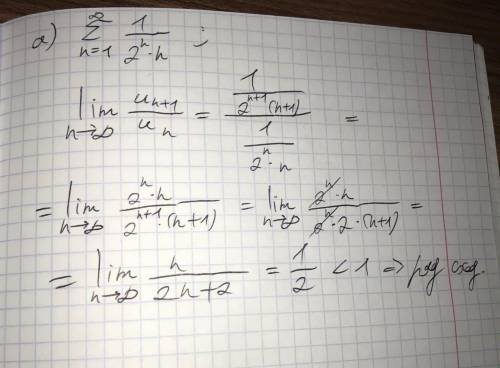 а) ∑_{n=1}^{∞} 1/(2^n · n) ;
lim_{n→∞} u_{n+1}/u_n = (1/(2^{n+1}(n+1)))/(1/(2^n · n)) =
= lim_{n→∞} (2^n · n)/(2^{n+1} · (n+1)) = lim_{n→∞} (2^n · n)/(2^n · 2 · (n+1)) =
= lim_{n→∞} n/(2n+2) = 1/2 < 1 => ряд сход.